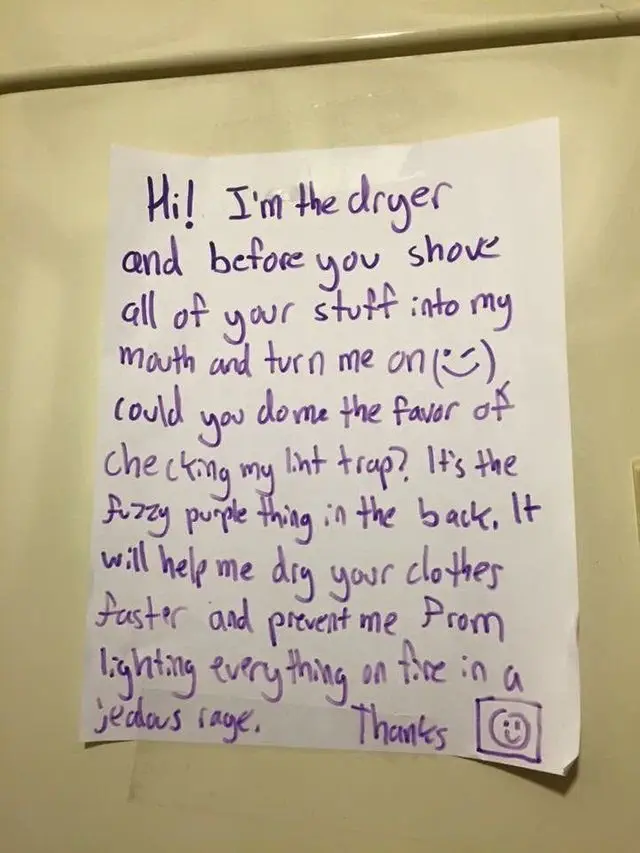 Hi! I'm the dryer
and before you shove
all of your stuff into my
mouth and turn me on (;‿)
could you do me the favor of
checking my lint trap? It's the
fuzzy purple thing in the back. It
will help me dry your clothes
faster and prevent me from
lighting everything on fire in a
jealous rage. Thanks